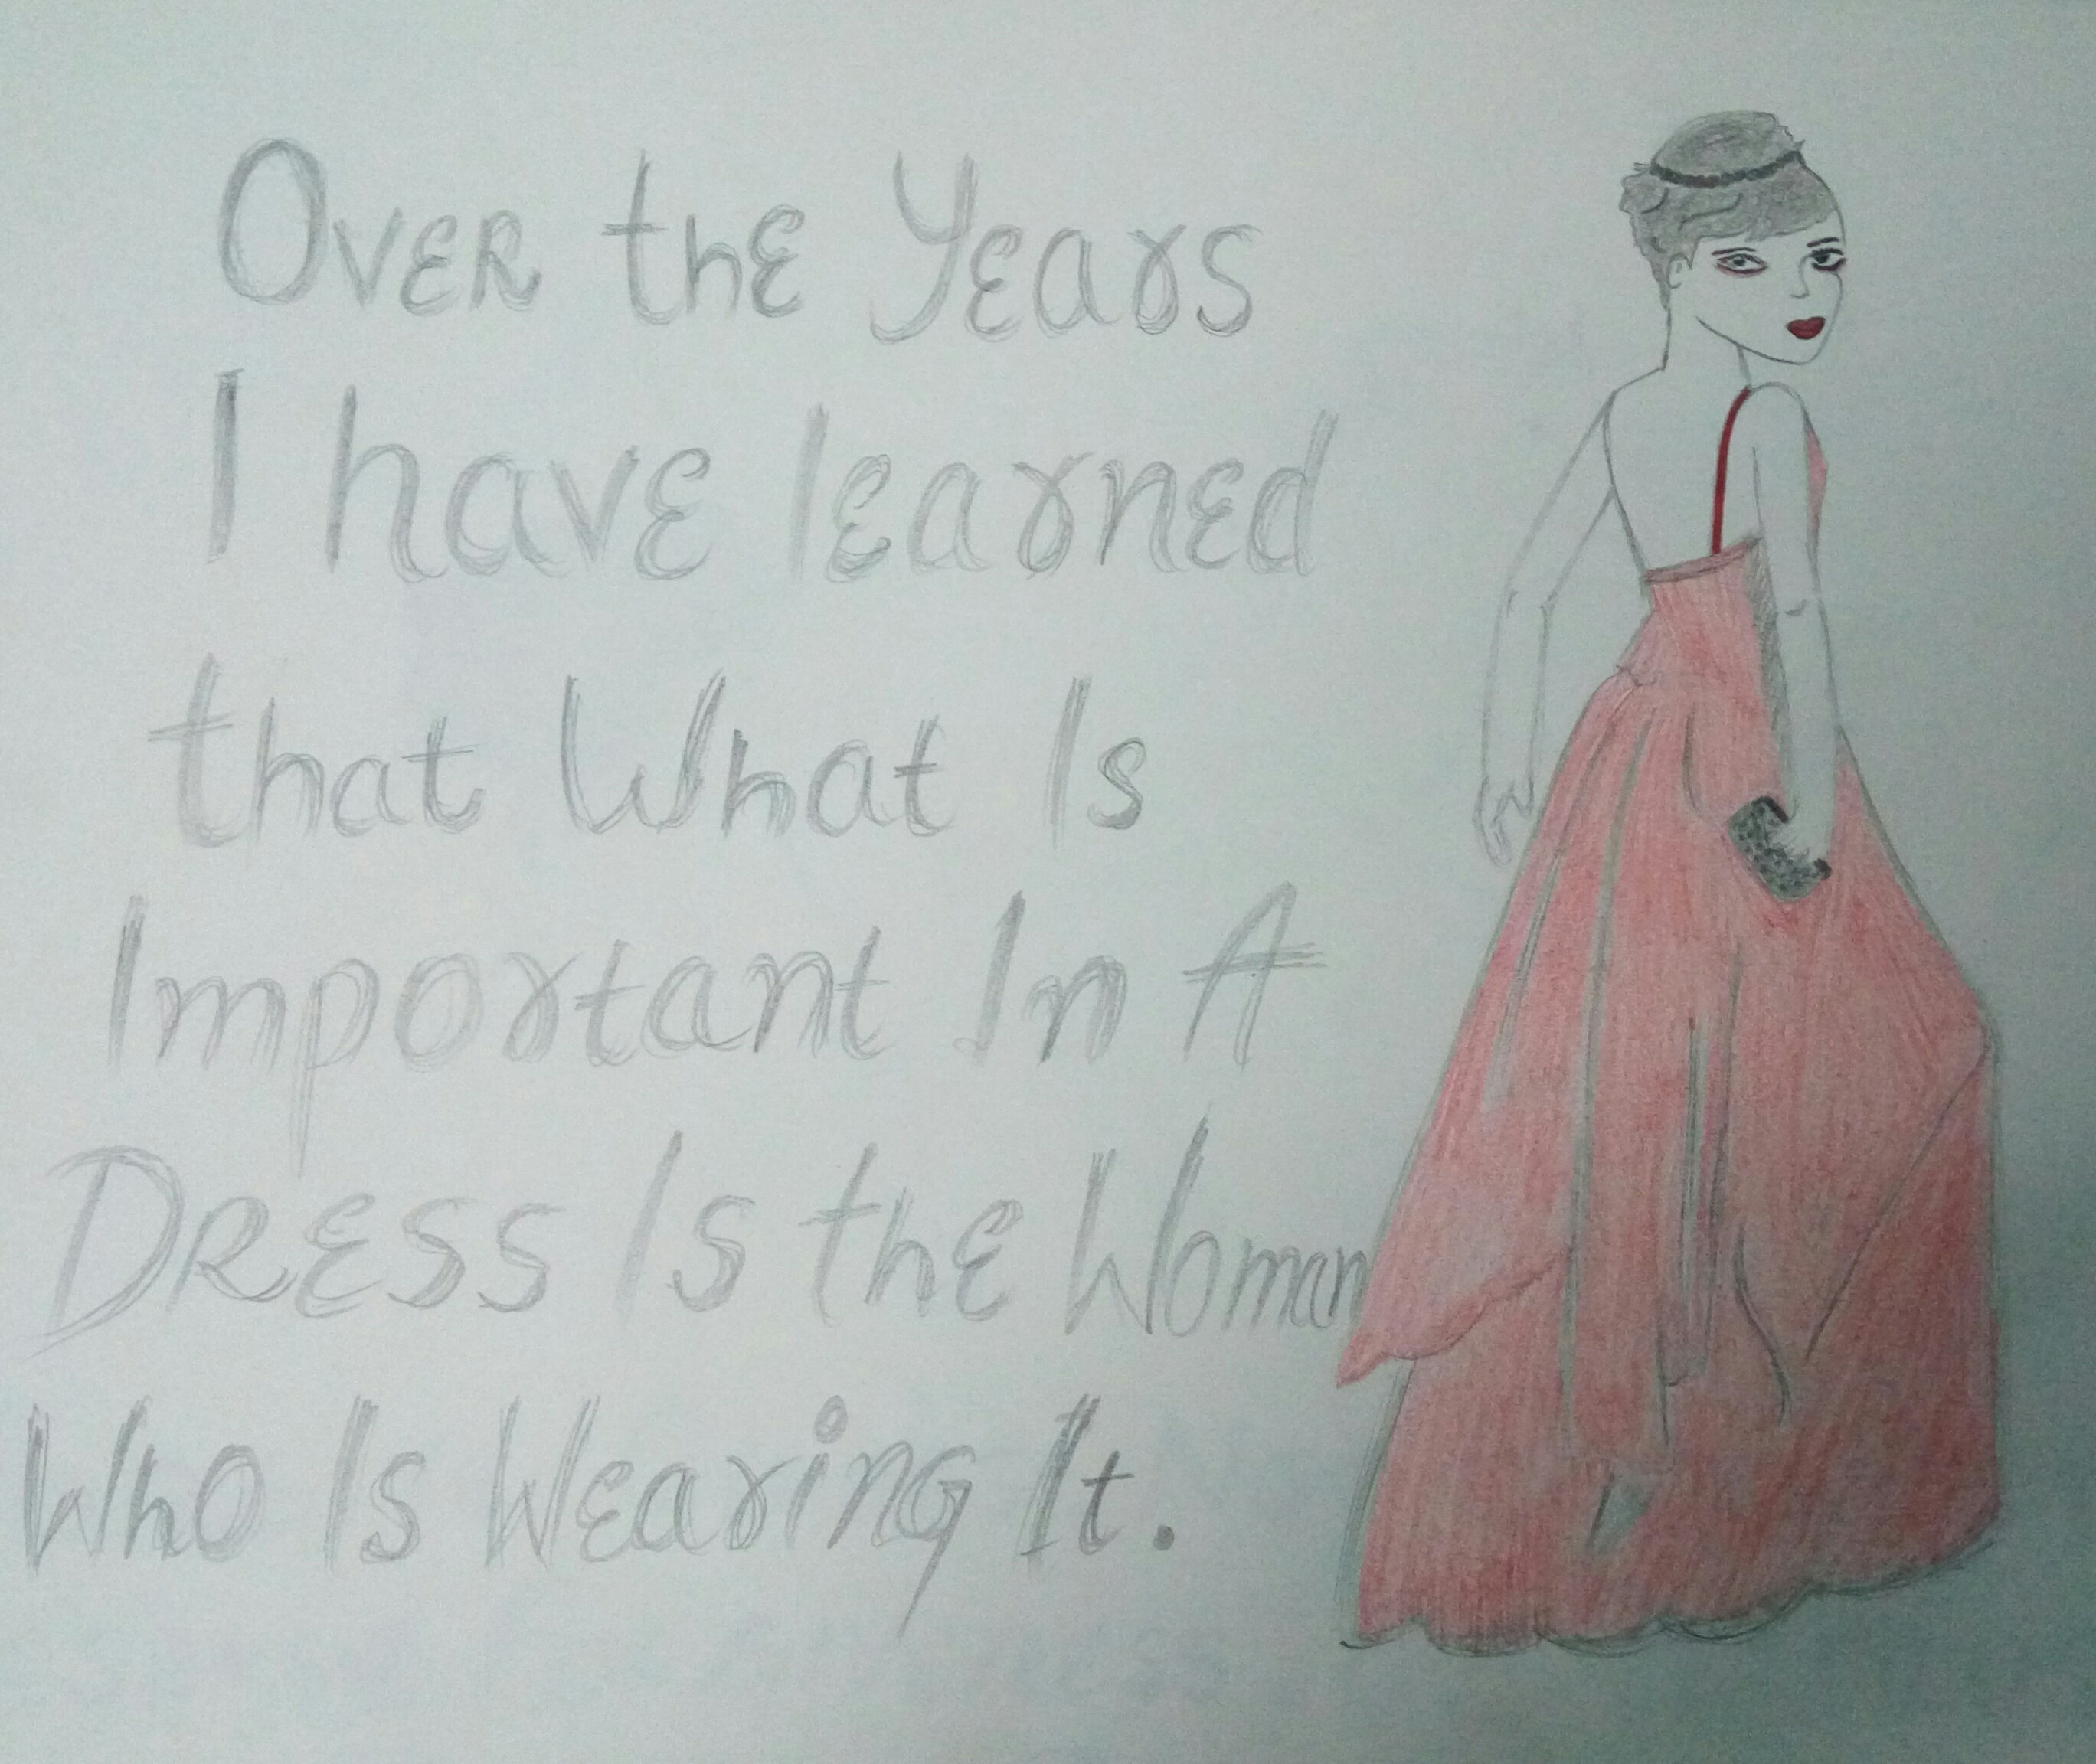 Over the Years
I have learned
that What Is
Important In A
DRESS Is the Woman
Who Is Wearing It.